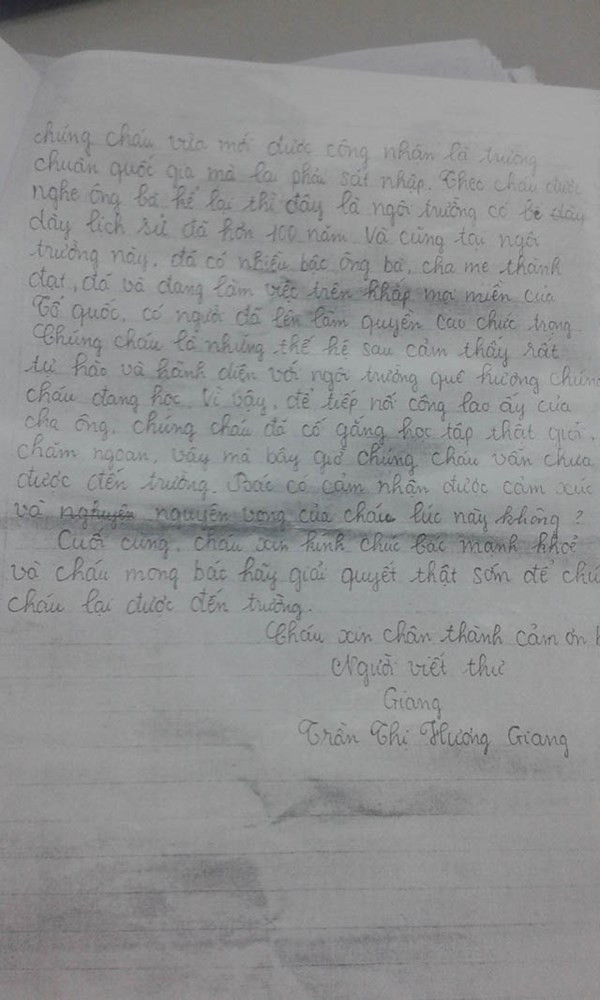 chúng cháu vừa mới được công nhân là trường
chuẩn quốc gia mà lại phải sát nhập. Theo cháu được
nghe ông bà kể lại thì đây là ngôi trường có bề dày
dày lịch sử đã hơn 100 năm và cũng tại ngôi
trường này, đã có nhiều bậc ông bà, cha mẹ thành
đạt, đã và đang làm việc trên khắp mọi miền của
Tổ quốc, có người đã lên làm quyền cao chức trọng
Chúng cháu là những thế hệ sau cảm thấy rất
tự hào và hành diện với ngôi trường quê hương chúng
cháu đang học. Vì vậy, để tiếp nối công lao ấy của
cha ông, chúng cháu đã cố gắng học tập thật giỏi,
chăm ngoan, vậy mà bây giờ chúng cháu vẫn chưa
được đến trường. Bác có cảm nhận được cảm xúc
và nguyện vọng của cháu lúc này không?
Cuối cùng, cháu xin kính chúc bác mạnh khoẻ
và cháu mong bác hãy giải quyết thật sớm để chú
cháu lại được đến trường.
Cháu xin chân thành cảm ơn b
Người viết thư
Giang
Trần Thị Hương Giang